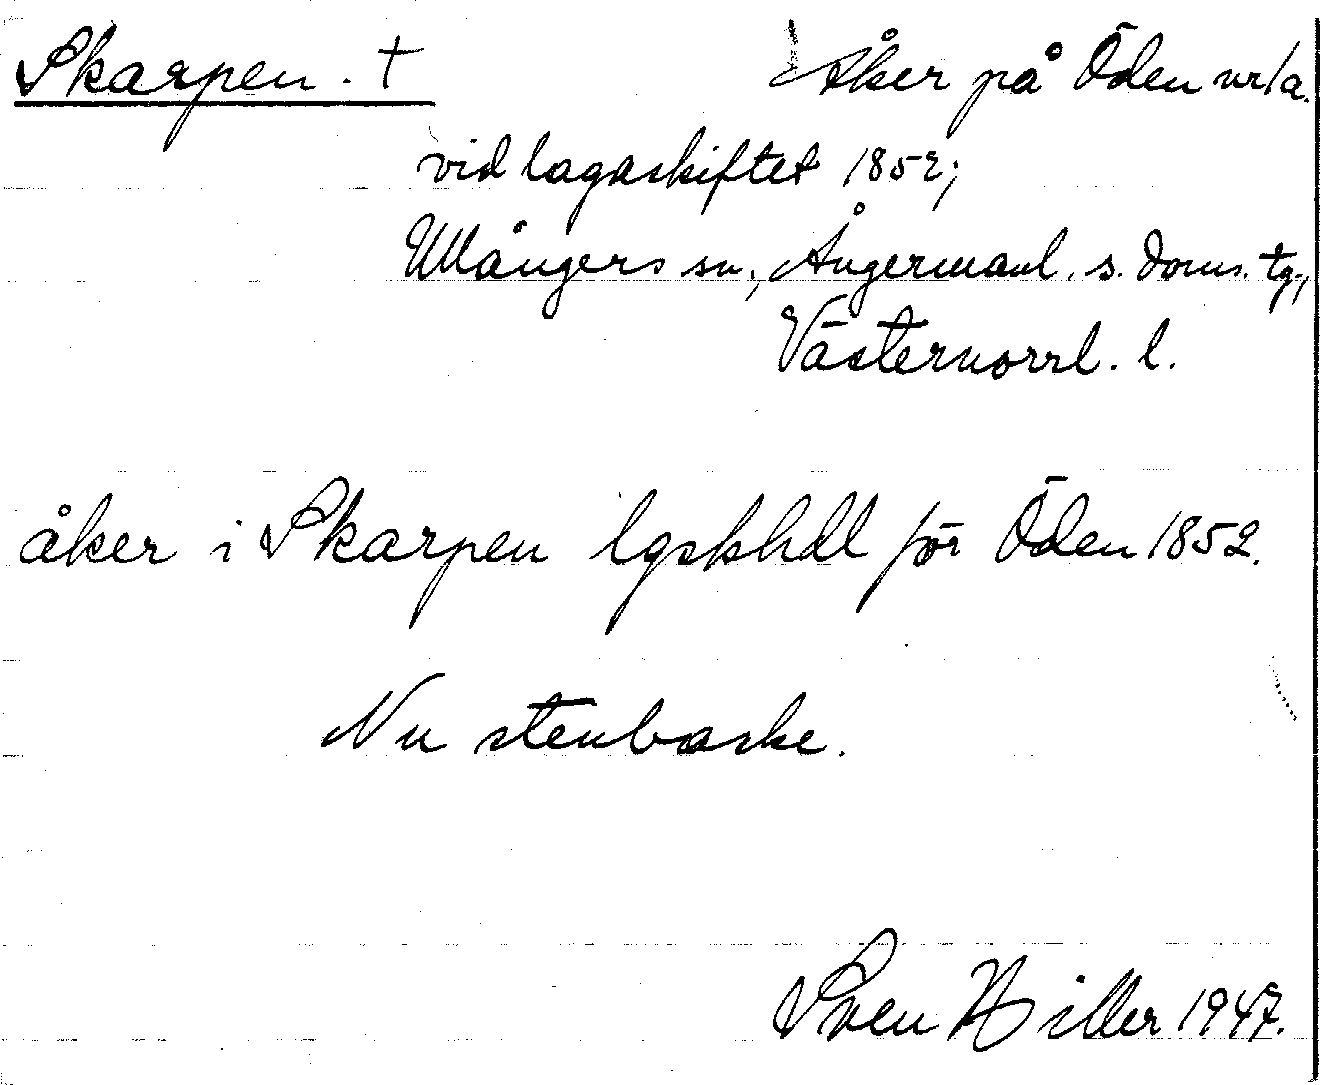 Skarpen. † Åker på Öden nr 1a.
vid lagaskiftet 1852;
Ullångers sn., Ångermanl. s. doms. tg.,
Västernorrl. l.
åker i Skarpen lgskhdl för Öden 1852.
Nu stenbacke.
Sven Hiller 1947.